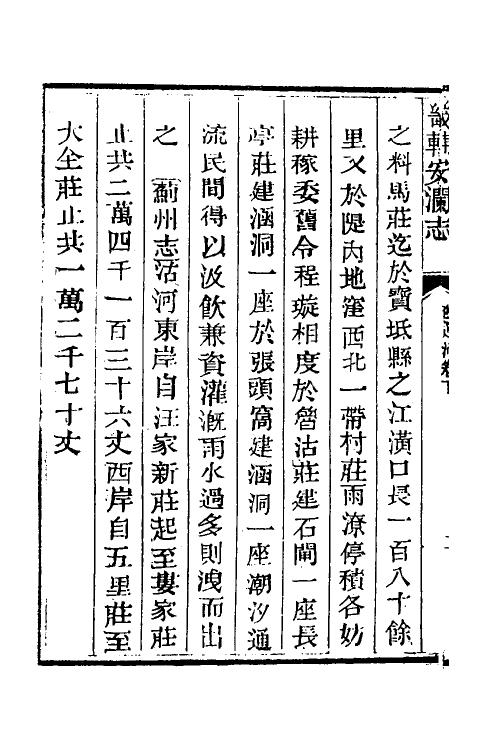 畿輔安瀾志
之料馬莊迄於寶坻縣之江潢口長一百八十餘
里又於隄內地窪西北一帶村莊雨潦停積各妨
耕稼委舊令程璇相度於營沽莊建石閘一座長
亭莊建涵洞一座於張頭窩建涵洞一座潮汐通
流民間得以汲飲兼資灌漑雨水過多則洩而出
之　薊州志沽河東岸自汪家新莊起至婁家莊
止共二萬四千一百三十六丈西岸自五里莊至
大仝莊止共一萬二千七十丈